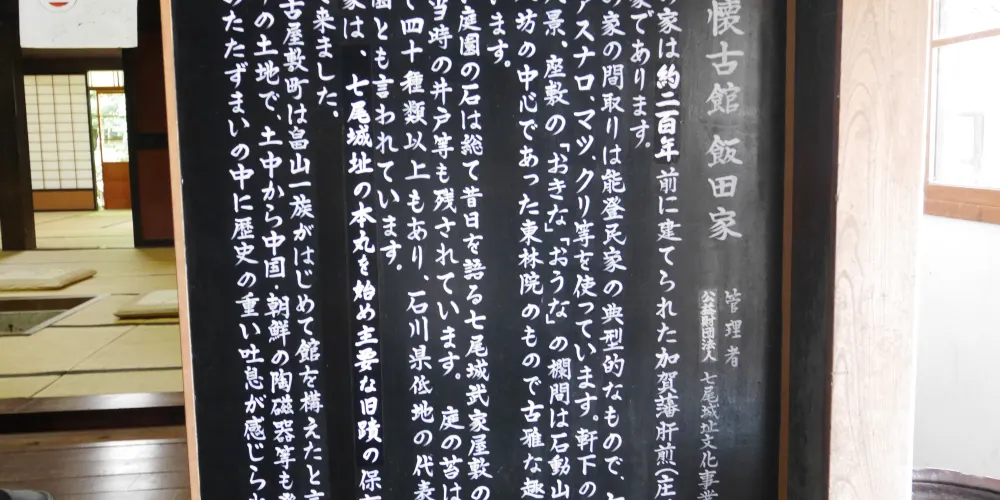 懐古館 飯田家
管理者
公益財団法人 七尾城址文化事業
の家は約二百年前に建てられた加賀藩肝煎(庄
家であります。
の家の間取りは能登民家の典型的なもので、
アスナロ、マツ、クリ等を使っています。軒下の
景、座敷の「おきな」「おうな」の欄間は石動山
坊の中心であった東林院のもので古雅な趣
います。
庭園の石は総て昔日を語る七尾城武家屋敷の
当時の井戸等も残されています。 庭の苔は
て四十種類以上もあり、石川県低地の代表
園とも言われています。
家は、七尾城址の本丸を始め主要な旧蹟の保
て来ました。
古屋敷町は畠山一族がはじめて館を構えたと言
の土地で、土中から中国・朝鮮の陶磁器等も
のたたずまいの中に歴史の重い吐息が感じら